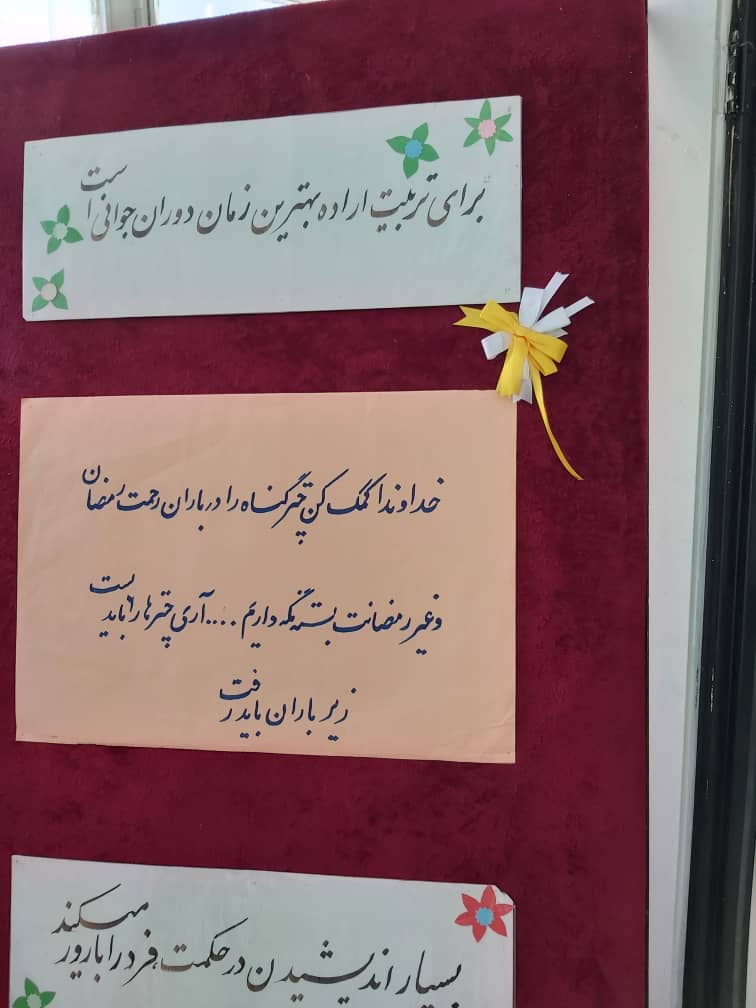 برای تربیت اراده بهترین زمان دوران جوانی است
خداوندا کمک کن چتر گناه را در باران رحمت رمضان
و غیر رمضانت بسته نگه داریم .... آری چترها را باید بست
زیر باران باید رفت
بسیار اندیشیدن در حکمت، فرد را بارور میکند